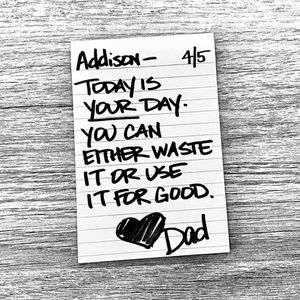 Addison— 4/5
TODAY IS
YOUR DAY.
YOU CAN
EITHER WASTE
IT OR USE
IT FOR GOOD.
Dad